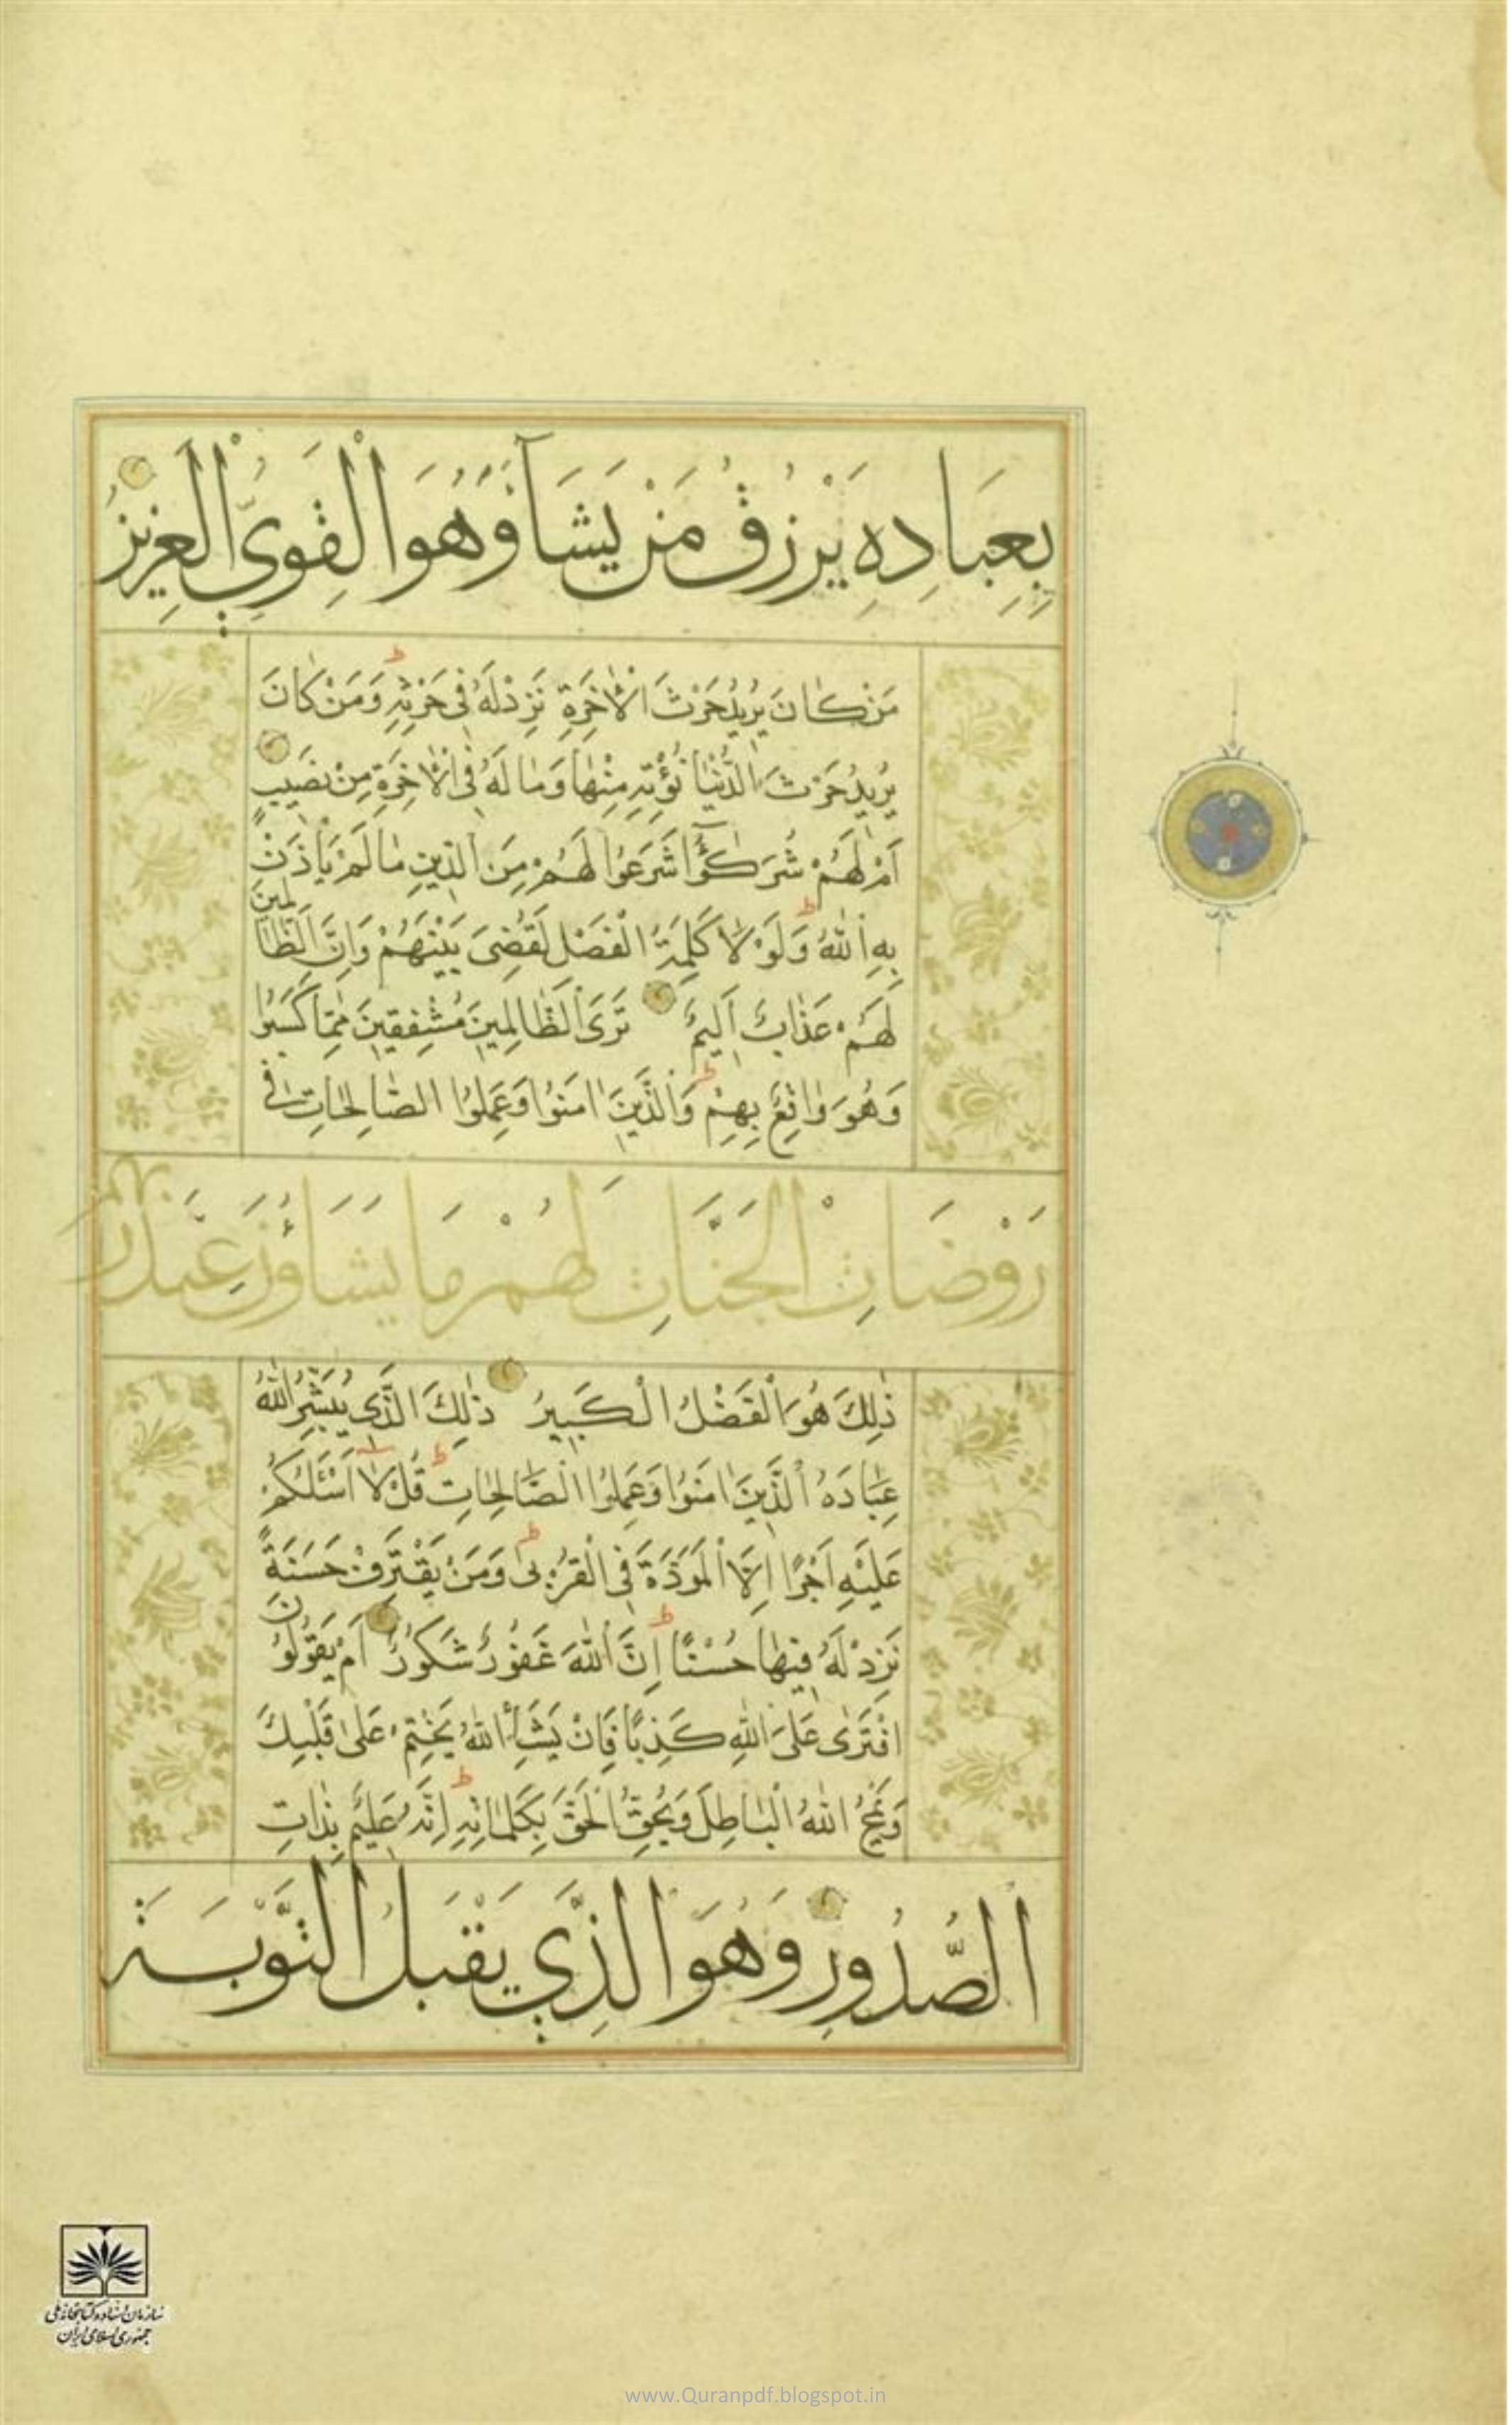 بِعِبَادِهِ يَرْزُقُ مَنْ يَشَآءُ وَهُوَ الْقَوِيُّ الْعَزِيزُ
مَنْ كَانَ يُرِيدُ حَرْثَ الْاٰخِرَةِ نَزِدْ لَهُ فِي حَرْثِهِ ط وَمَنْ كَانَ
يُرِيدُ حَرْثَ الدُّنْيَا نُؤْتِهِ مِنْهَا وَمَا لَهُ فِي الْاٰخِرَةِ مِنْ نَصِيبٍ
اَمْ لَهُمْ شُرَكٰٓؤُا شَرَعُوا لَهُمْ مِنَ الدِّينِ مَا لَمْ يَأْذَنْ
بِهِ اللّٰهُ ط وَلَوْلَا كَلِمَةُ الْفَصْلِ لَقُضِيَ بَيْنَهُمْ وَاِنَّ الظَّالِمِينَ
لَهُمْ عَذَابٌ اَلِيمٌ تَرَى الظَّالِمِينَ مُشْفِقِينَ مِمَّا كَسَبُوا
وَهُوَ وَاقِعٌ بِهِمْ ط وَالَّذِينَ اٰمَنُوا وَعَمِلُوا الصَّالِحَاتِ فِي
رَوْضَاتِ الْجَنَّاتِ لَهُمْ مَا يَشَاؤُنَ عِنْدَ رَبِّهِمْ
ذٰلِكَ هُوَ الْفَضْلُ الْكَبِيرُ ذٰلِكَ الَّذِي يُبَشِّرُ اللّٰهُ
عِبَادَهُ الَّذِينَ اٰمَنُوا وَعَمِلُوا الصَّالِحَاتِ ط قُلْ لَا اَسْئَلُكُمْ
عَلَيْهِ اَجْرًا اِلَّا الْمَوَدَّةَ فِي الْقُرْبٰى ط وَمَنْ يَقْتَرِفْ حَسَنَةً
نَزِدْ لَهُ فِيهَا حُسْنًا ط اِنَّ اللّٰهَ غَفُورٌ شَكُورٌ اَمْ يَقُولُونَ
افْتَرٰى عَلَى اللّٰهِ كَذِبًا فَاِنْ يَشَأِ اللّٰهُ يَخْتِمْ عَلٰى قَلْبِكَ
وَيَمْحُ اللّٰهُ الْبَاطِلَ وَيُحِقُّ الْحَقَّ بِكَلِمَاتِهِ ط اِنَّهُ عَلِيمٌ بِذَاتِ
الصُّدُورِ وَهُوَ الَّذِي يَقْبَلُ التَّوْبَةَ
سازمان اسناد و کتابخانه ملی
جمهوری اسلامی ایران
www.Quranpdf.blogspot.in